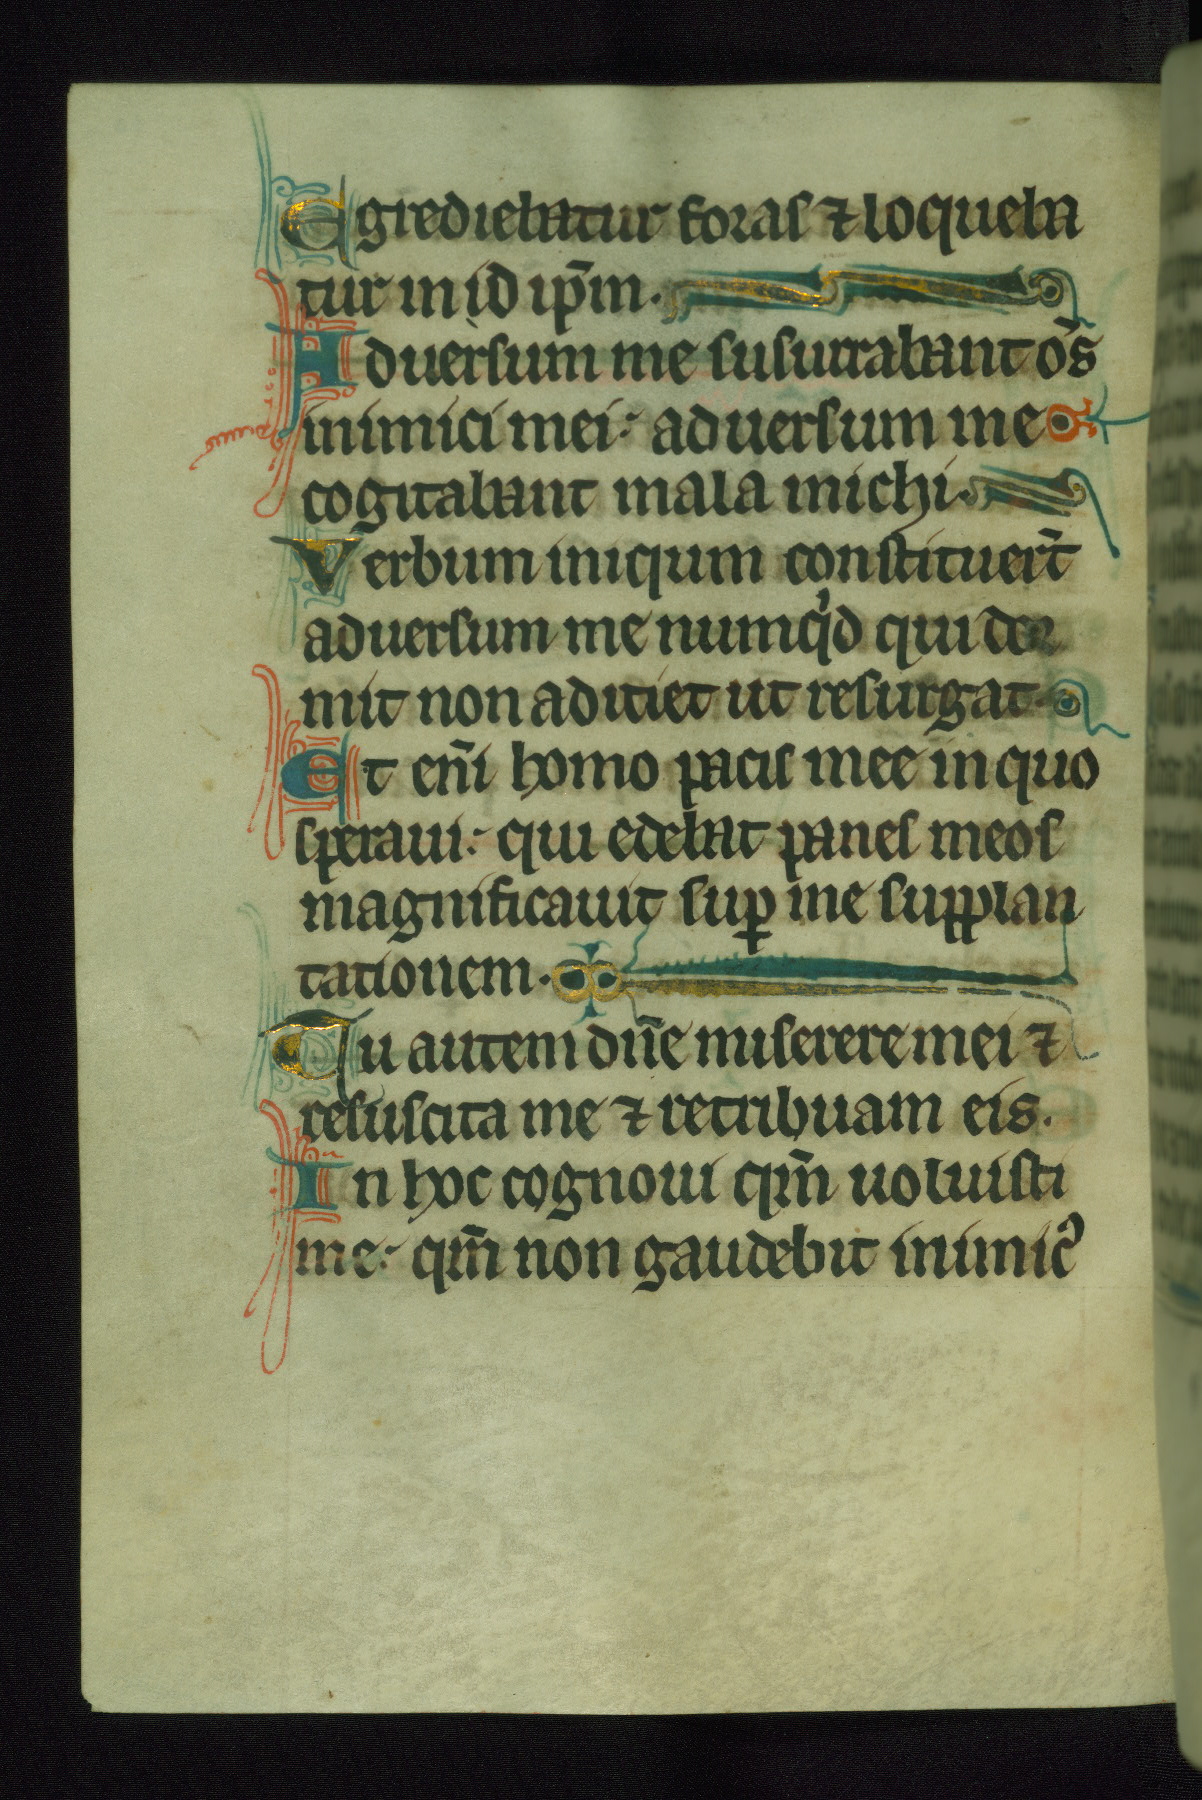 Egrediebatur foras ⁊ loqueba
tur in id ip̄m.
Aduersum me susurrabant om̄s
inimici mei: aduersum me
cogitabant mala michi.
Verbum iniqum constituer̄t
aduersum me numqͥd qui dor
mit non adiciet ut resurgat.
Et eni̅ homo pacis mee in quo
speraui: qui edebat panes meos
magnificauit sup̱ me supplan
tationem.
Tu autem dn̄e miserere mei ⁊
resuscita me ⁊ retribuam eis.
In hoc cognoui qm̄ uoluisti
me: qm̄ non gaudebit inimicꝰ